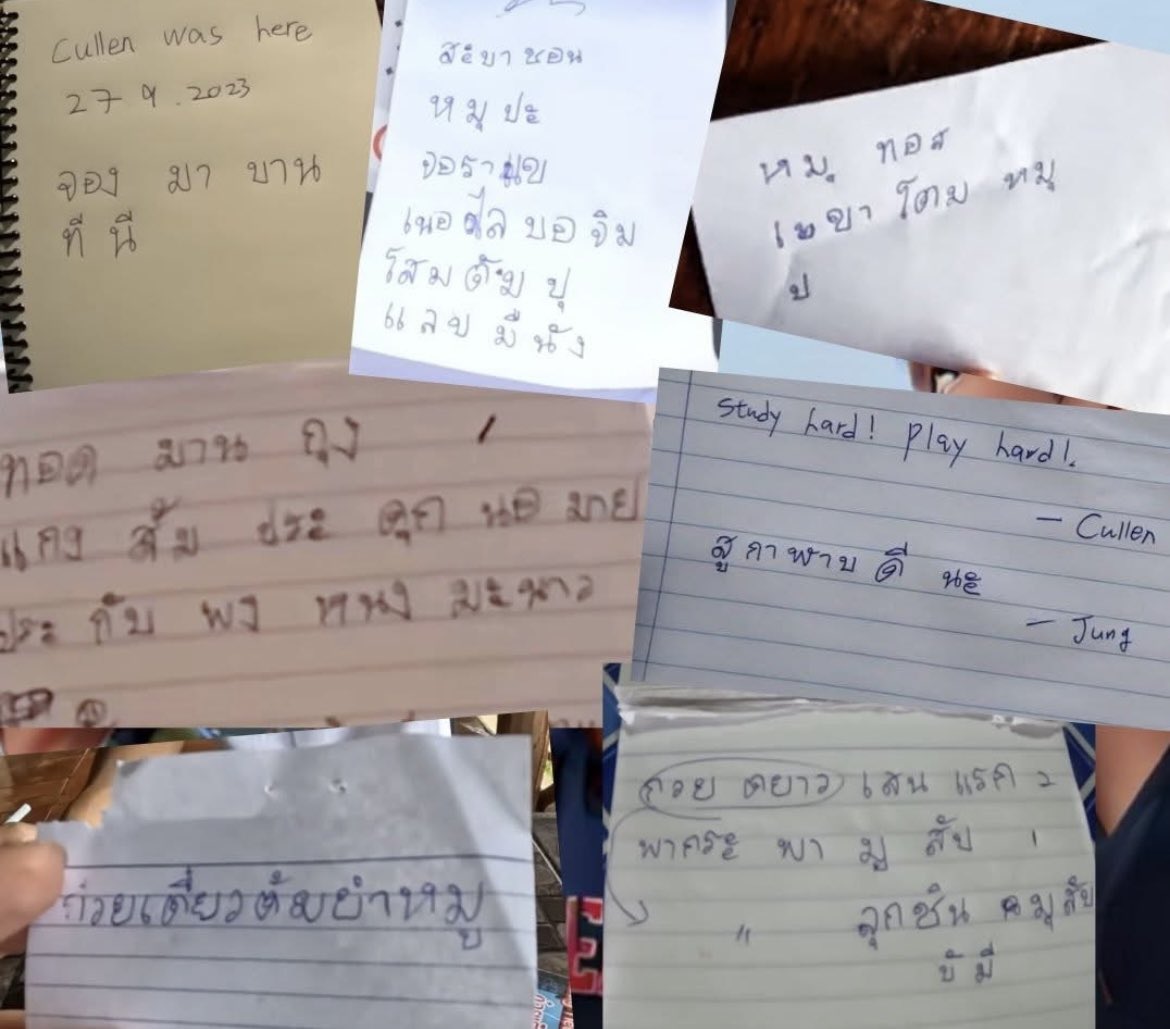 Cullen was here
27.9.2023
จอง มา บาน
ที นี
สะบา ชอน
หมุ ปะ
จอราแข
เนอ ไล บอ จิม
โสม ต้ม ปุ
แลบ มีนัง
หมุ ทอส
เขา โตม หมุ
ป
ทอด มาน กุง
แกง ส้ม ประ ดุก นอ มาย
ประ กับ พง หนง มะนาว
Study hard! Play hard!
— Cullen
สู กา พาบ ดี นะ
— Jung
กวย ตยาว เสน แรก 2
พากระ พา มู สับ 1
" ลุกชิน หมุ สับ
บั มี
ก่วยเตี่ยวต้มยำหมู